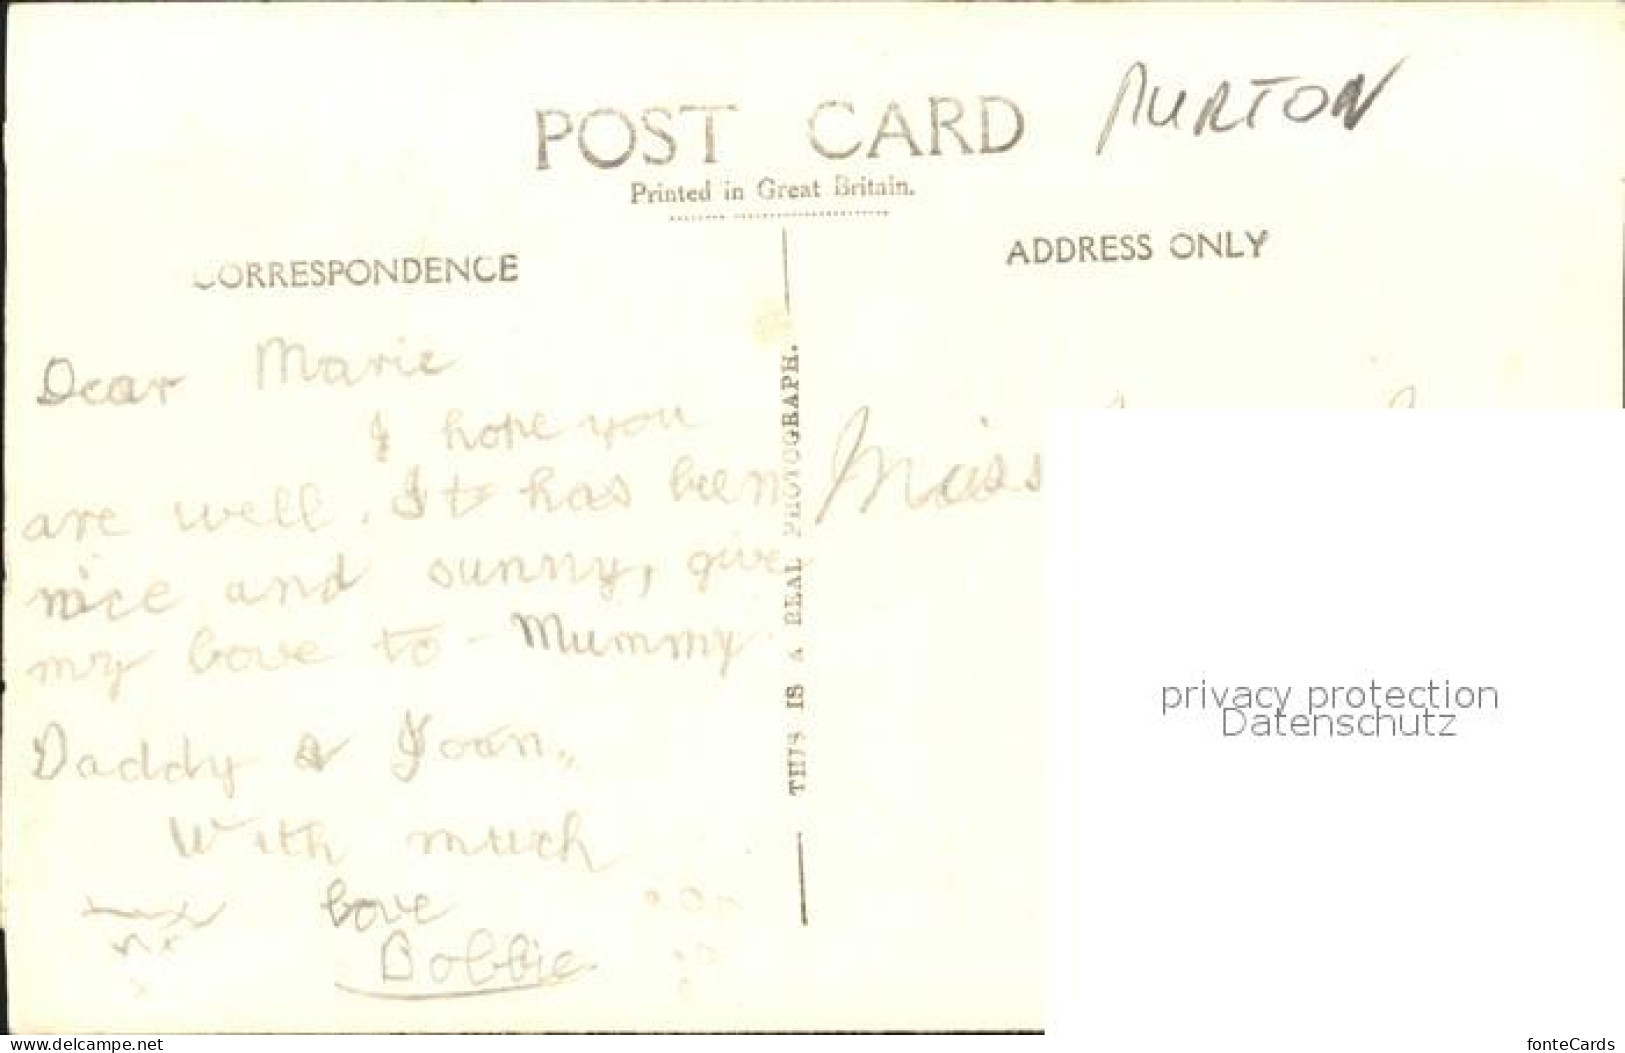 POST CARD
Printed in Great Britain.
CORRESPONDENCE
ADDRESS ONLY
Dear Marie
I hope you
are well. It has been
nice and sunny, give
my love to Mummy
Daddy & Joan.
With much
love
Bobbie
THIS IS A REAL PHOTOGRAPH.
Miss
privacy protection
Datenschutz
www.ak-ansichtskarten.de
fonteCards